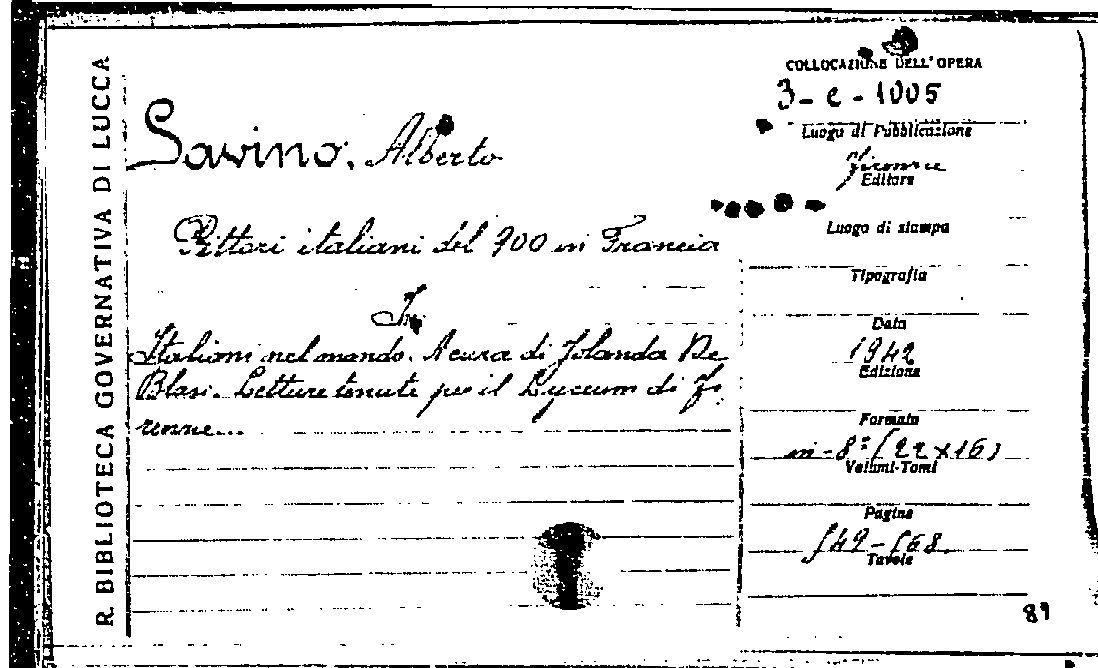 R. BIBLIOTECA GOVERNATIVA DI LUCCA
COLLOCAZIONE DELL'OPERA
3-e-1005
Savino, Alberto
Pittori italiani del 900 in Francia
In
Italiani nel mondo. A cura di Jolanda De
Blasi. Letture tenute per il Lyceum di Fi
renze...
Luogo di Pubblicazione
Firenze
Editore
Luogo di stampa
Tipografia
Data
1942
Edizione
Formato
in-8° (22x16)
Volumi-Tomi
Pagine
549-568
Tavole
89